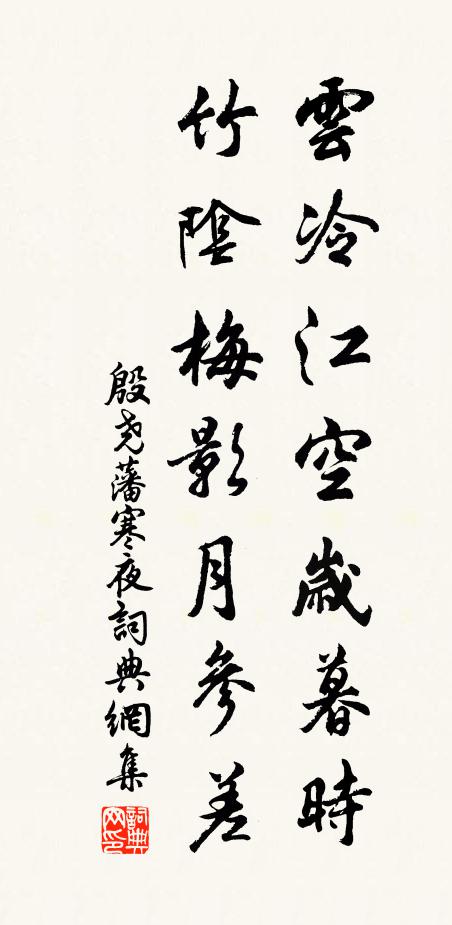 雲冷江空歲暮時
竹陰梅影月參差
殷堯藩寒夜詞典網集
詞典网印